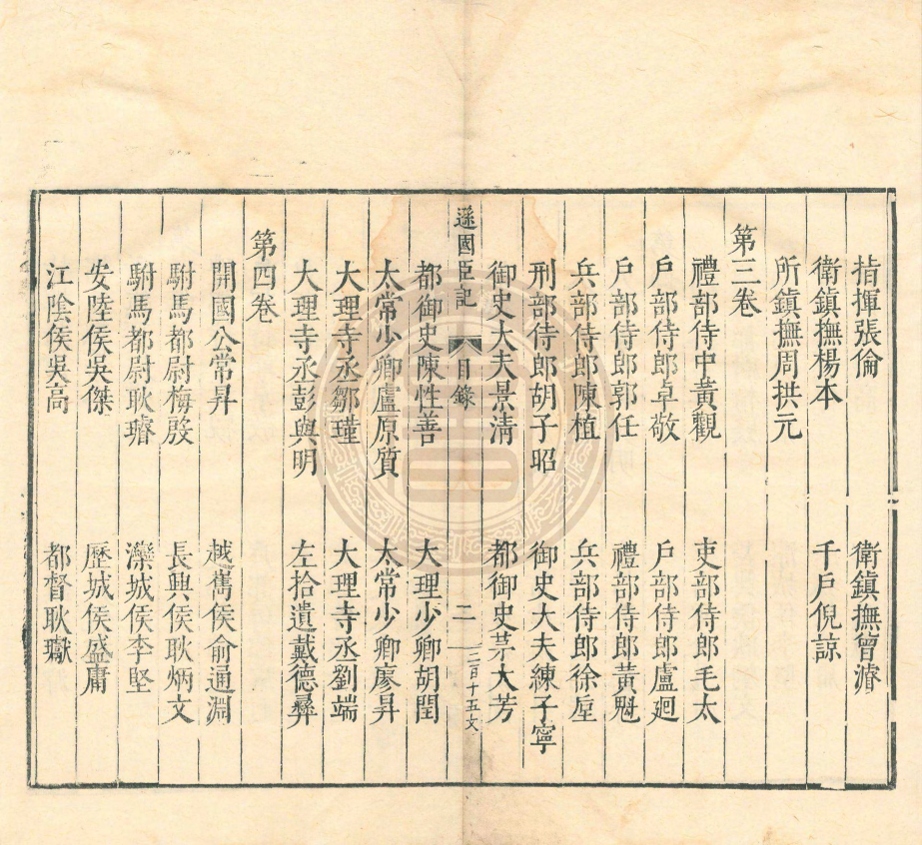 指揮張倫　衛鎮撫曾濬
衛鎮撫楊本　千戶倪諒
所鎮撫周拱元
第三卷
禮部侍中黃觀　吏部侍郎毛太
戶部侍郎卓敬　戶部侍郎盧迥
戶部侍郎郭任　禮部侍郎黃魁
兵部侍郎陳植　兵部侍郎徐垕
刑部侍郎胡子昭　御史大夫練子寧
御史大夫景清　都御史茅大芳
遜國臣記　目錄　二　三百十五文
都御史陳性善　大理少卿胡閏
太常少卿盧原質　太常少卿廖昇
大理寺丞鄒瑾　大理寺丞劉端
大理寺丞彭與明　左拾遺戴德彝
第四卷
開國公常昇　越嶲侯俞通淵
駙馬都尉梅殷　長興侯耿炳文
駙馬都尉耿璿　灤城侯李堅
安陸侯吳傑　歷城侯盛庸
江陰侯吳高　都督耿瓛